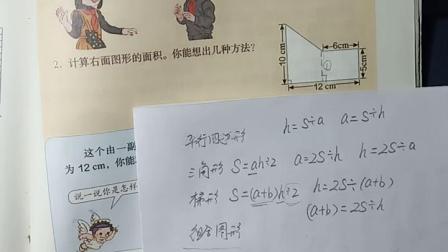 2. 计算右面图形的面积。你能想出几种方法？
10 cm
6cm
5cm
12 cm
这个由一副
为 12 cm，你能
说一说你是怎样
平行四边形 h=S÷a a=S÷h
三角形 S=ah÷2 a=2S÷h h=2S÷a
梯形 S=(a+b)h÷2 h=2S÷(a+b)
(a+b)=2S÷h
组合图形